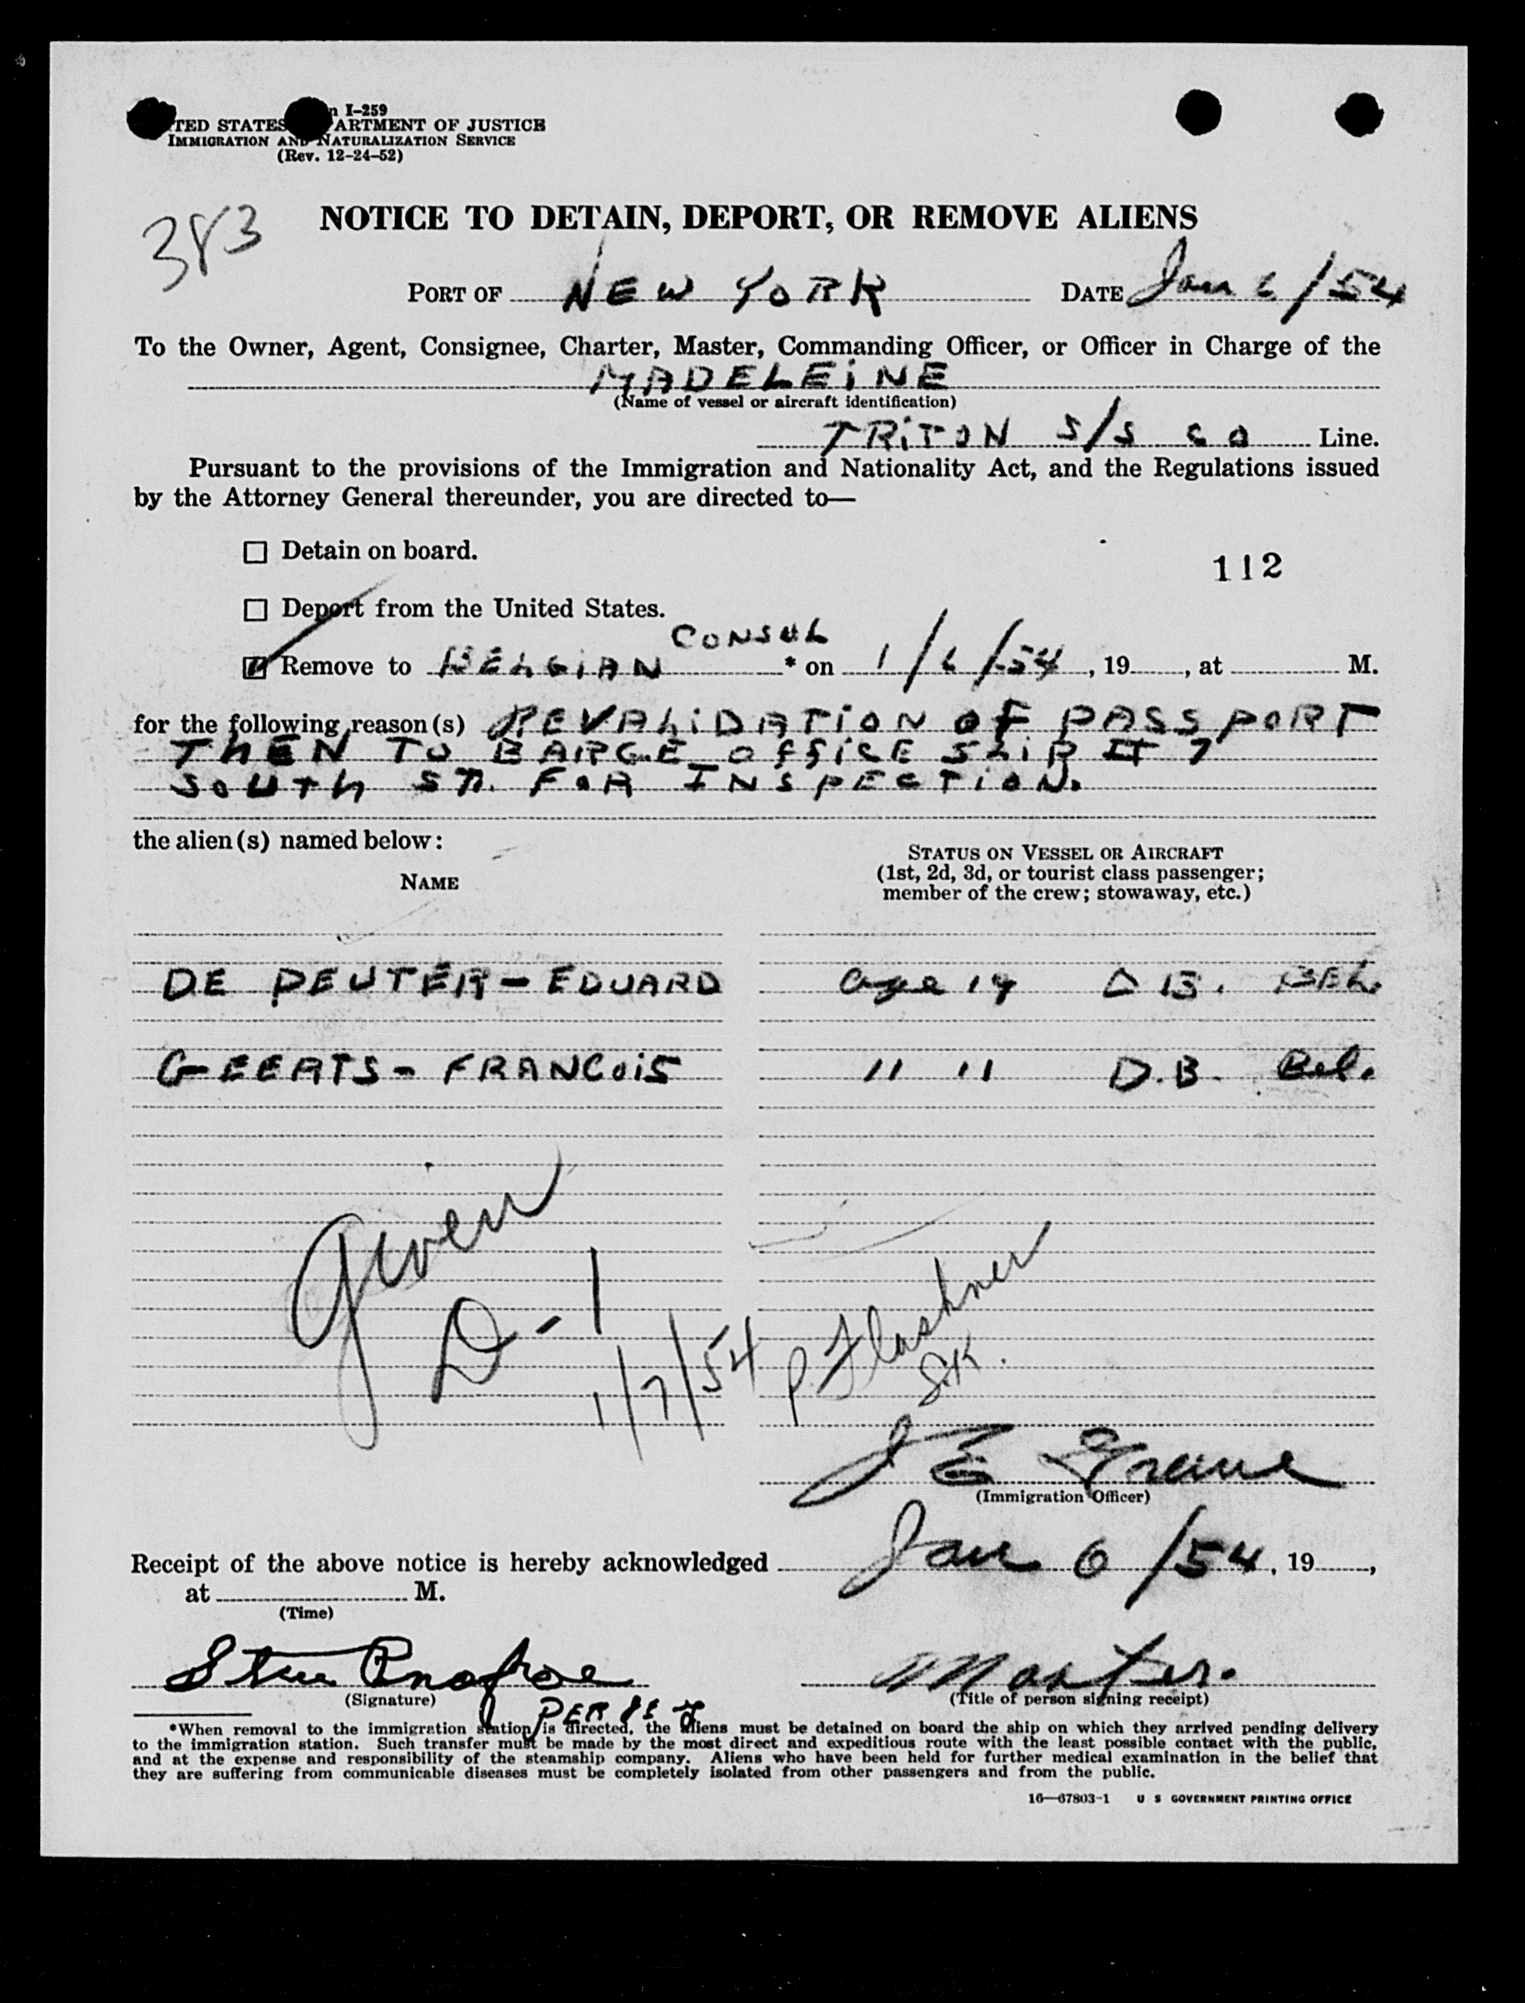 I-259
TED STATES ARTMENT OF JUSTICE
IMMIGRATION AND NATURALIZATION SERVICE
(Rev. 12-24-52)
383
NOTICE TO DETAIN, DEPORT, OR REMOVE ALIENS
PORT OF NEW YORK DATE Jan 6/54
To the Owner, Agent, Consignee, Charter, Master, Commanding Officer, or Officer in Charge of the
MADELEINE
(Name of vessel or aircraft identification)
TRITON S/S CO Line.
Pursuant to the provisions of the Immigration and Nationality Act, and the Regulations issued
by the Attorney General thereunder, you are directed to—
☐ Detain on board.
112
☐ Deport from the United States.
CONSUL
☑ Remove to BELGIAN * on 1/6/54, 19, at M.
for the following reason(s) REVALIDATION OF PASSPORT
THEN TO BARGE OFFICE SLIP # 7
SOUTH ST. FOR INSPECTION.
the alien(s) named below:
STATUS ON VESSEL OR AIRCRAFT
NAME (1st, 2d, 3d, or tourist class passenger;
member of the crew; stowaway, etc.)
DE PEUTER - EDUARD age 14 D B. BEL.
GEERTS - FRANCOIS 11 11 D.B. Bel.
Given
D-1
1/7/54 P. Flashner
J E
(Immigration Officer)
Receipt of the above notice is hereby acknowledged Jan 6/54, 19,
at M.
(Time)
Master.
(Signature) (Title of person signing receipt)
*When removal to the immigration station is directed, the aliens must be detained on board the ship on which they arrived pending delivery
to the immigration station. Such transfer must be made by the most direct and expeditious route with the least possible contact with the public,
and at the expense and responsibility of the steamship company. Aliens who have been held for further medical examination in the belief that
they are suffering from communicable diseases must be completely isolated from other passengers and from the public.
16—67803-1 U S GOVERNMENT PRINTING OFFICE